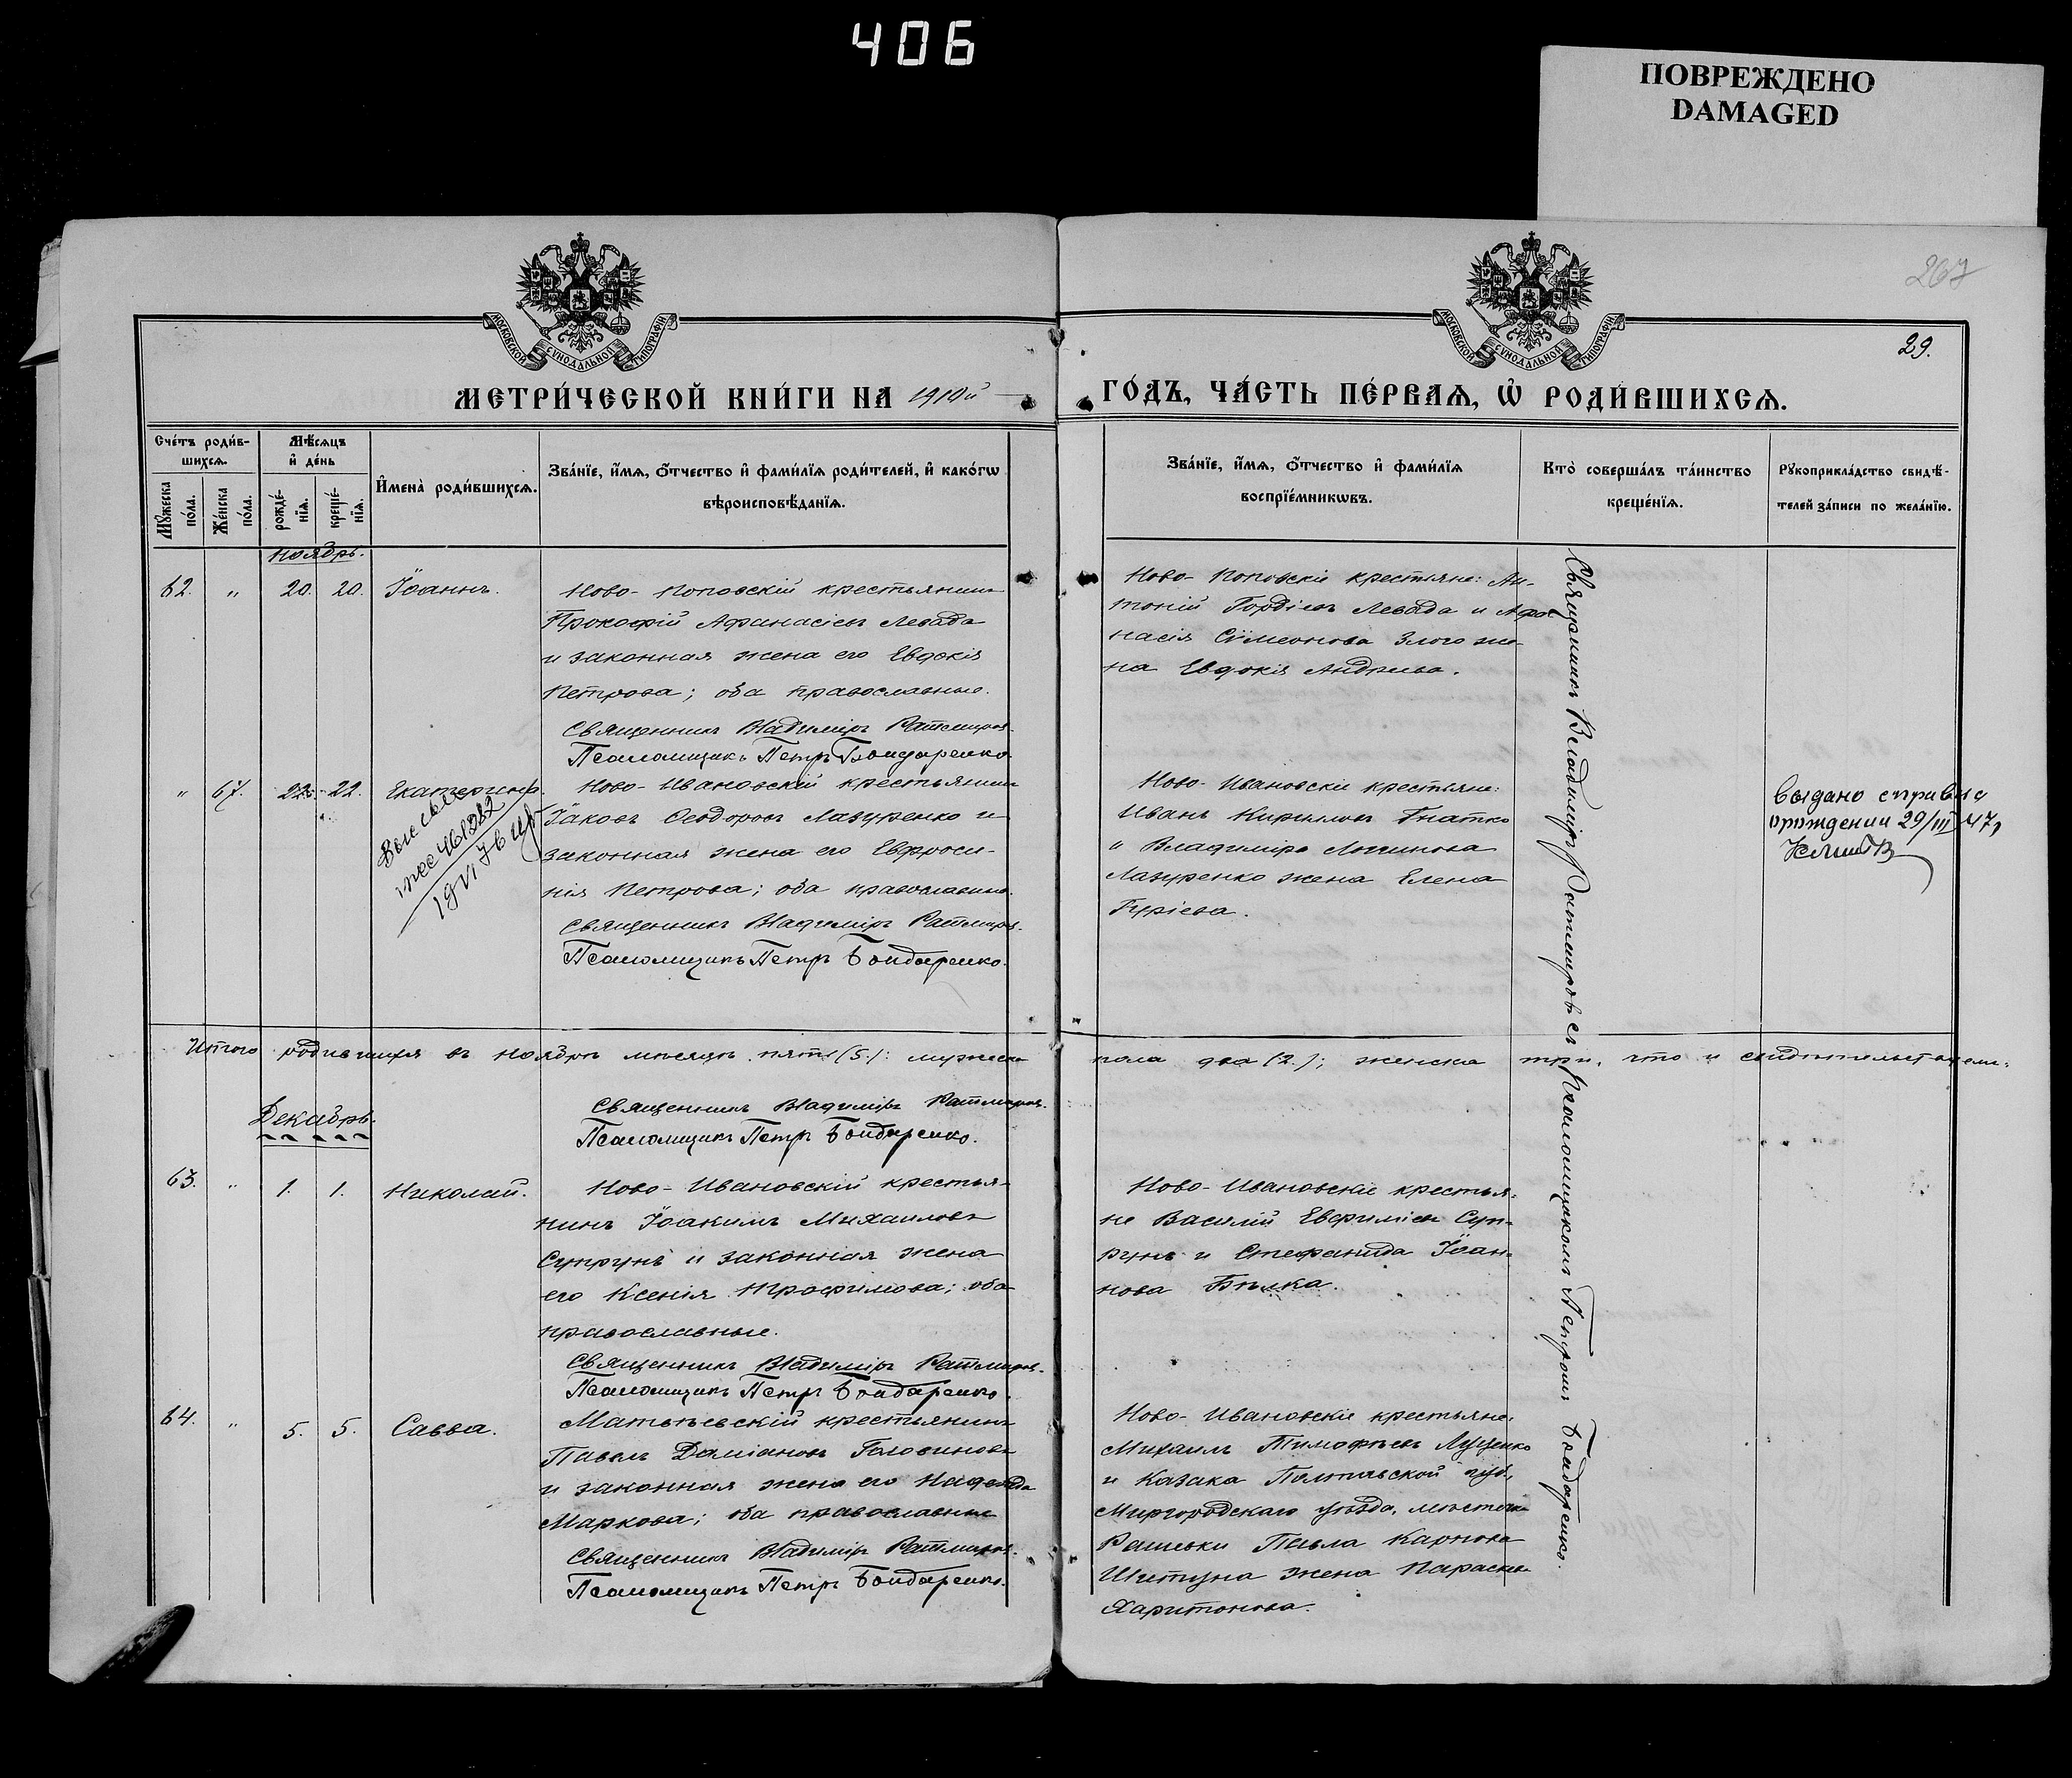 406
ПОВРЕЖДЕНО
DAMAGED
267
29.
МОСКОВСКОЙ СѴНОДАЛЬНОЙ ТИПОГРАФІИ
МОСКОВСКОЙ СѴНОДАЛЬНОЙ ТИПОГРАФІИ
МЕТРИ́ЧЕСКОЙ КНИ́ГИ НА 1910й
ГО́ДЪ, ЧА́СТЬ ПЕ́РВАѦ, Ѡ҆ РОДИ́ВШИХСѦ.
Сче́тъ роди́в-
шихсѧ.
Мꙋ́жеска по́ла.
Же́нска по́ла.
Мѣ́сѧцъ
и҆ де́нь
рожде́-нїѧ.
креще́-нїѧ.
И҆мена̀ роди́вшихсѧ.
Зва́нїе, и҆́мѧ, ѻ҆́тчество и҆ фами́лїѧ роди́телей, и҆ како́гѡ
вѣроисповѣ́данїѧ.
Зва́нїе, и҆́мѧ, ѻ҆́тчество и҆ фами́лїѧ
воспрїе́мникѡвъ.
Кто̀ соверша́лъ та́инство
креще́нїѧ.
Рꙋкоприкла́дство свидѣ́-
телей за́писи по жела́нїю.
Ноябрь.
62. " 20. 20. Іоаннъ.
Ново-Поповскій крестьянинъ
Прокофій Афанасіевъ Левада
и законная жена его Евдокія
Петрова; оба православные.
Священникъ Владиміръ Ратмировъ.
Псаломщикъ Петръ Бондаренко.
Ново-Поповскіе крестьяне: Ан-
тоній Гордіевъ Левада и Афа-
насія Сімеонова Злого же-
на Евдокія Андреева.
" 67. 22. 22. Екатерина.
1976
Ново-Ивановскій крестьянинъ
Іаковъ Ѳеодоровъ Лазуренко и
законная жена его Евфроси-
нія Петрова; оба православные.
Священникъ Владиміръ Ратмировъ.
Псаломщикъ Петръ Бондаренко.
Ново-Ивановскіе крестьяне:
Иванъ Кирилловъ Гнатко
и Владиміра Логинова
Лазуренко жена Елена
Гуріева.
Выдано справка
о рождении 29/III 47г
Итого родившихся въ Ноябрѣ мѣсяцѣ пять (5): мужеска пола два (2.); женска три, что и свидѣтельствуемъ.
Священникъ Владиміръ Ратмировъ.
Псаломщикъ Петръ Бондаренко.
Декабрь.
63. " 1. 1. Николай.
Ново-Ивановскій крестья-
нинъ Іоакимъ Михаиловъ
Супрунъ и законная жена
его Ксенія Трофимова; оба
православные.
Священникъ Владиміръ Ратмировъ.
Псаломщикъ Петръ Бондаренко.
Ново-Ивановскіе крестья-
не Василій Евфиміевъ Суп-
рунъ и Стефанида Іоан-
нова Бѣлка.
64. " 5. 5. Савва.
Матвѣевскій крестьянинъ
Павелъ Даміановъ Головиновъ
и законная жена его Надежда
Маркова; оба православные
Священникъ Владиміръ Ратмировъ.
Псаломщикъ Петръ Бондаренко.
Ново-Ивановскіе крестьяне:
Михаилъ Тимофѣевъ Луценко
и Казака Полтавской губ.,
Миргородскаго уѣзда, мѣстечка
Рашевки Павла Карпова
Шетуна жена Параскева
Харитонова.
Священникъ Владиміръ Ратмировъ съ псаломщикомъ Петромъ Бондаренко.